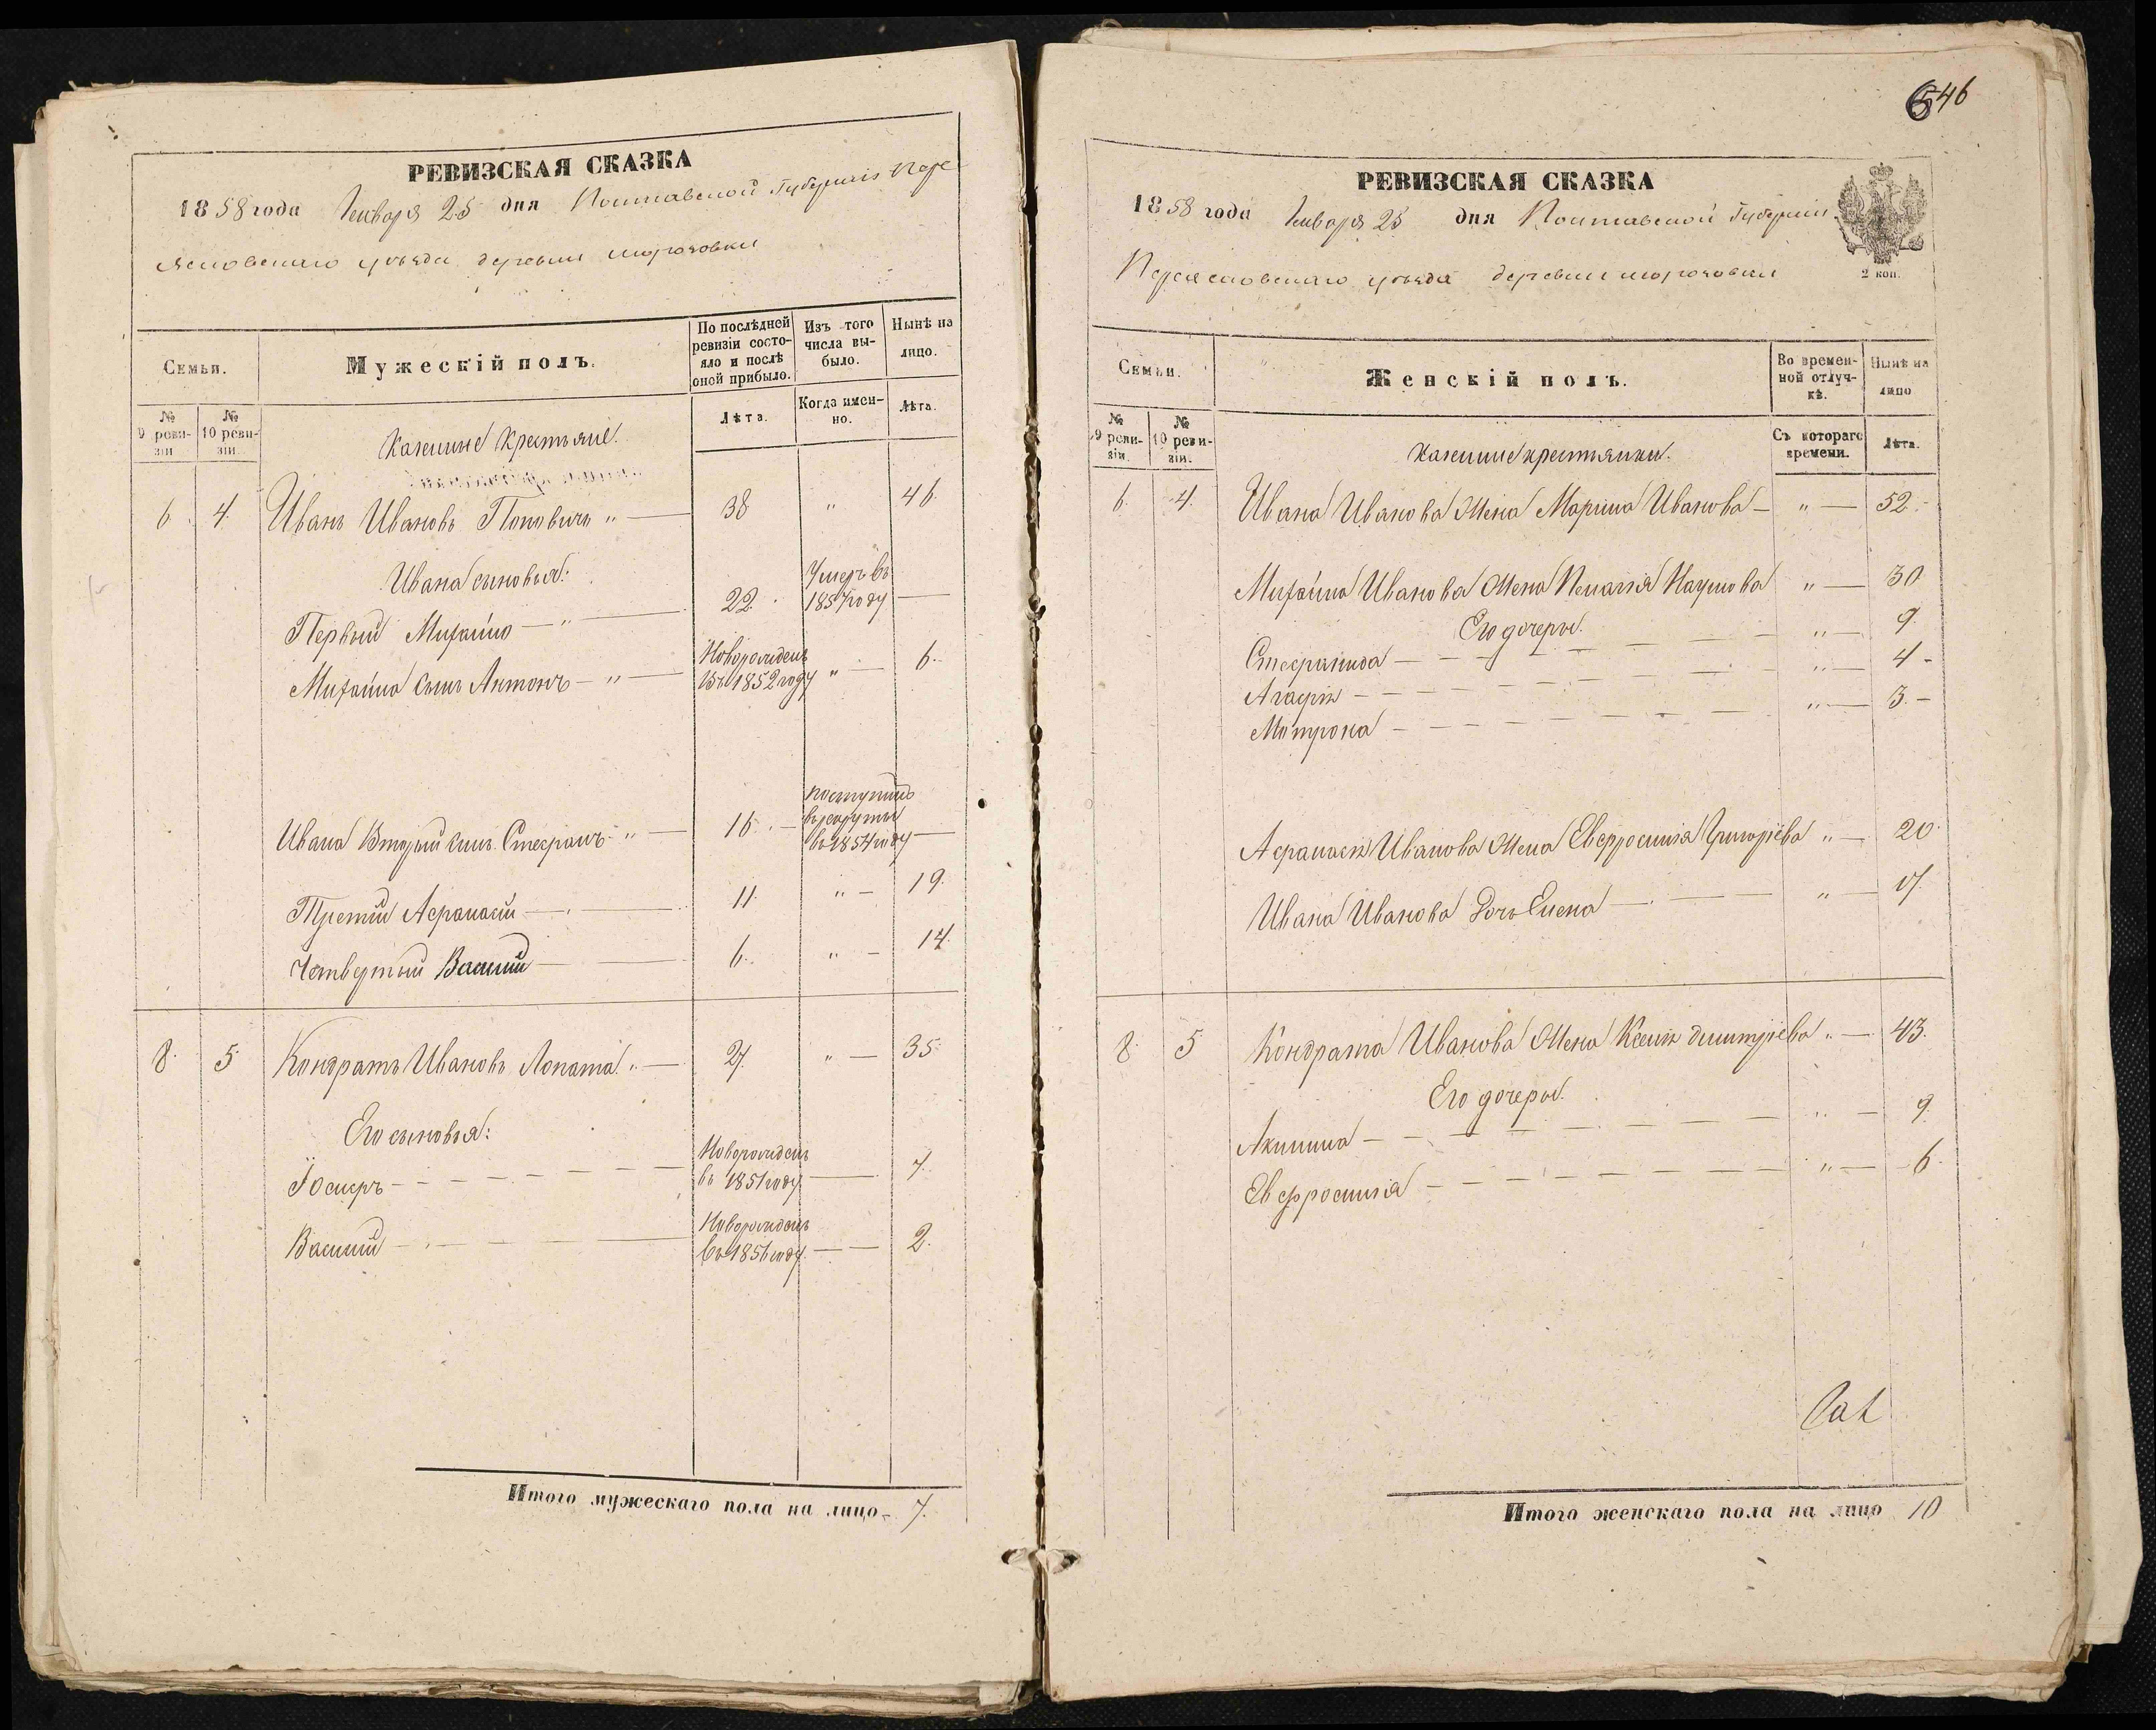 РЕВИЗСКАЯ СКАЗКА
1858 года Января 25 дня Полтавской Губернiи Пере
яславскаго уѣзда деревни
Семьи.
Мужескiй полъ.
По послѣдней ревизiи состояло и послѣ оной прибыло.
Изъ того числа выбыло.
Нынѣ на лицо.
№ 9 ревизiи
№ 10 ревизiи.
Казенные Крестьяне.
Лѣта.
Когда именно.
Лѣта.
6 4. Иванъ Ивановъ Поповичъ „ — 38 „ 46
Ивана сыновья:
Первый Михайло — „ — 22. Умеръ въ 1857 году —
Михайла Сынъ Антонъ — „ — Новорожденъ въ 1852 году „ — 6.
Ивана Второй сынъ Стефанъ „ — 16. — поступилъ въ рекруты въ 1854 году —
Третiй Афанасiй — 11. „ — 19.
Четвертый Василiй — 6. „ — 14.
8. 5. Кондратъ Ивановъ Лопата „ — 27. „ — 35.
Его сыновья:
Iосифъ — Новорожденъ въ 1851 году — 7.
Василiй — Новорожденъ въ 1856 году. — 2.
Итого мужескаго пола на лицо — 7.
6546
РЕВИЗСКАЯ СКАЗКА
1858 года Января 25 дня Полтавской Губернiи
Переяславскаго уѣзда деревни
2 коп.
Семьи.
Женскiй полъ.
Во временной отлучкѣ.
Нынѣ на лицо
№ 9 ревизiи.
№ 10 ревизiи.
Казенные крестьянки.
Съ котораго времени.
Лѣта.
6. 4. Ивана Иванова Жена Марина Иванова — „ — 52.
Михайла Иванова Жена Пелагiя Наумова „ — 30
Его дочеры.
Стефанида — „ — 9.
Агафiя — „ — 4 -
Мотрона — „ — 3. -
Афанасiя Иванова Жена Евфросинiя Григорiева „ — 20.
Ивана Иванова Дочь Елена — „ — 17.
8. 5 Кондрата Иванова Жена Ксенiя Дмитрiева „ — 43.
Его дочеры.
Акилина — „ — 9.
Евфросинiя — „ — 6.
Итого женскаго пола на лицо 10